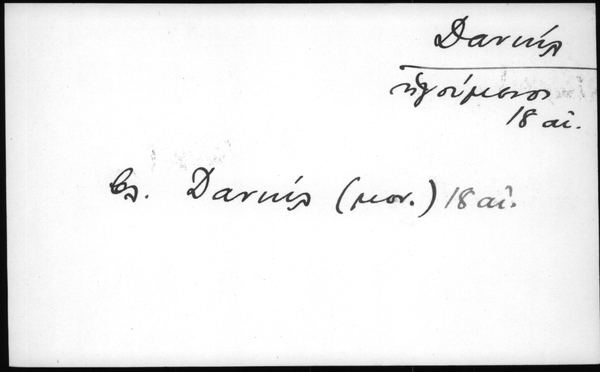 Δανιήλ
ἡγούμενος
18 αἰ.
βλ. Δανιήλ (μον.) 18 αἰ.